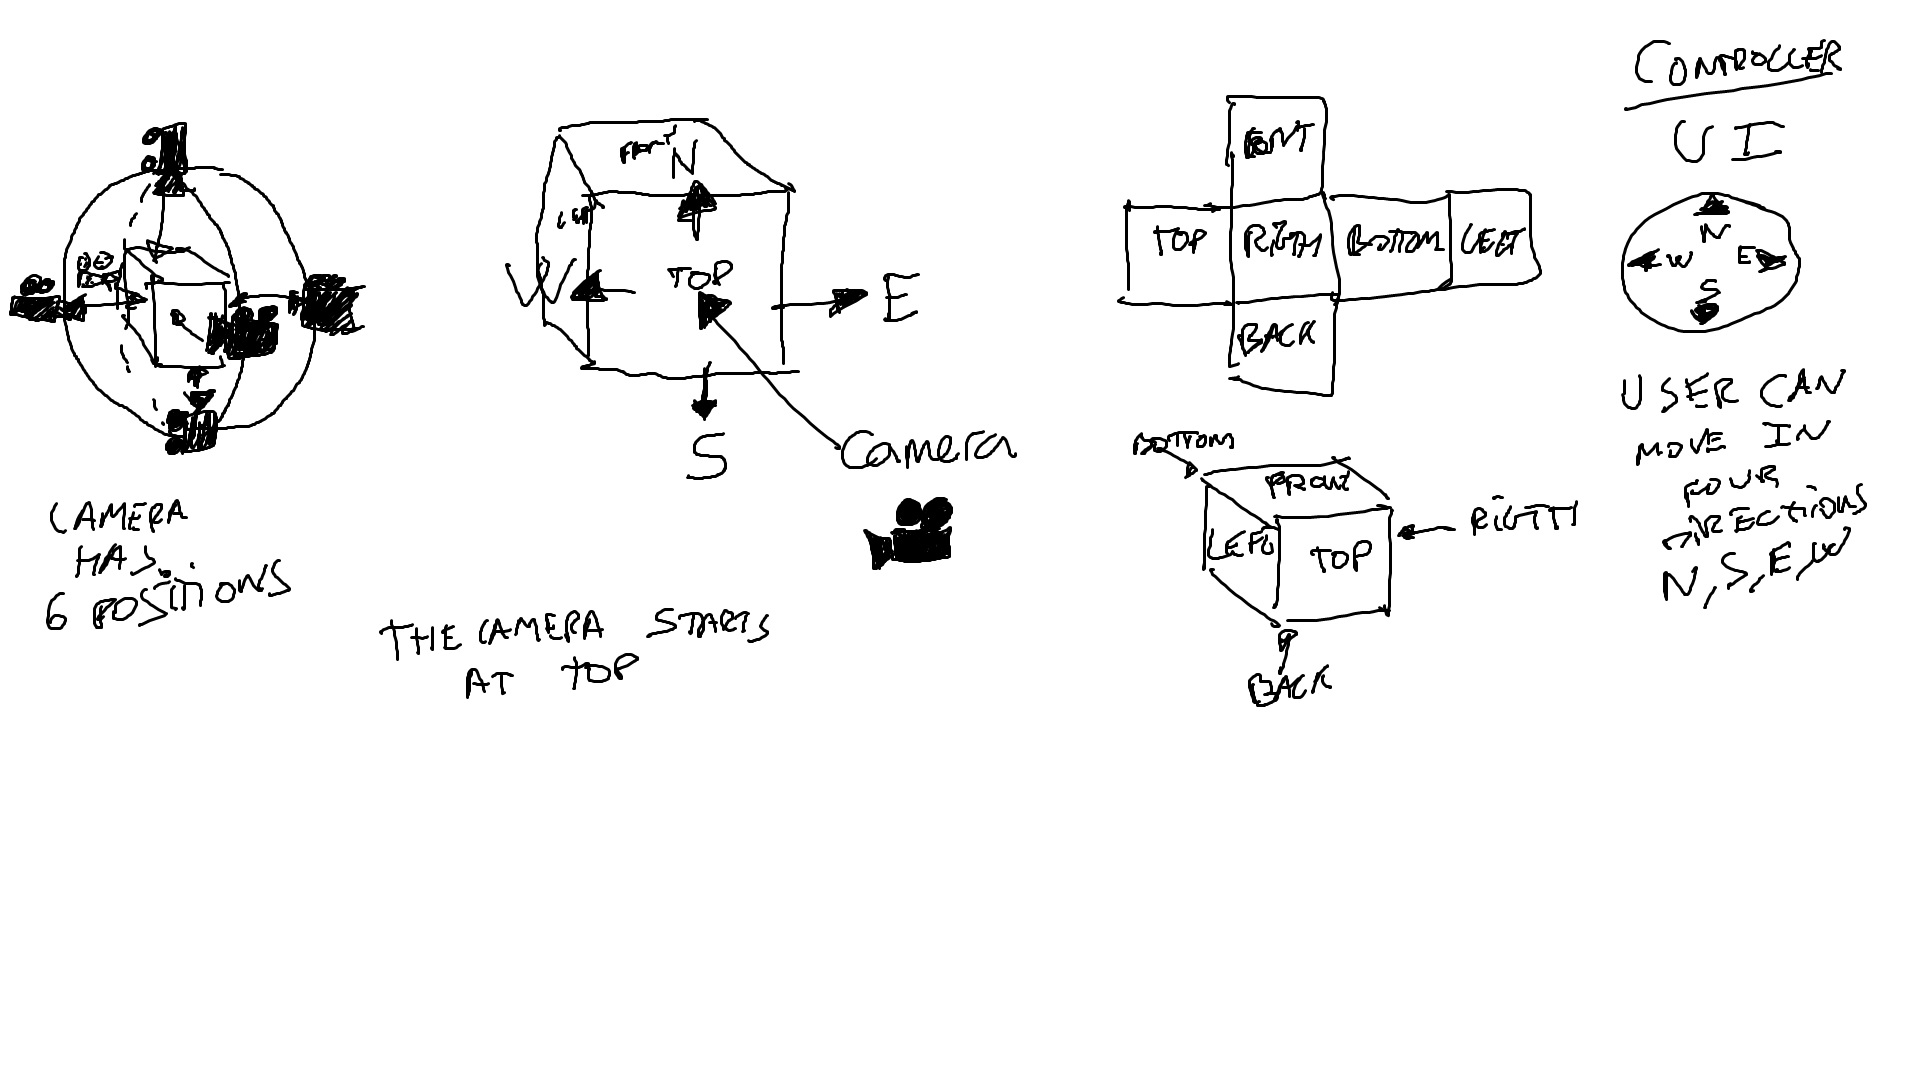 CAMERA
HAS
6 POSITIONS
FRONT
N
LEFT
W
TOP
E
S
Camera
THE CAMERA STARTS
AT TOP
FRONT
TOP RIGTH BOTTOM LEFT
BACK
BOTTOM
FRONT
LEFT
TOP
RIGTH
BACK
CONTROLLER
UI
N
W E
S
USER CAN
MOVE IN
FOUR
DIRECTIONS
N, S, E, W